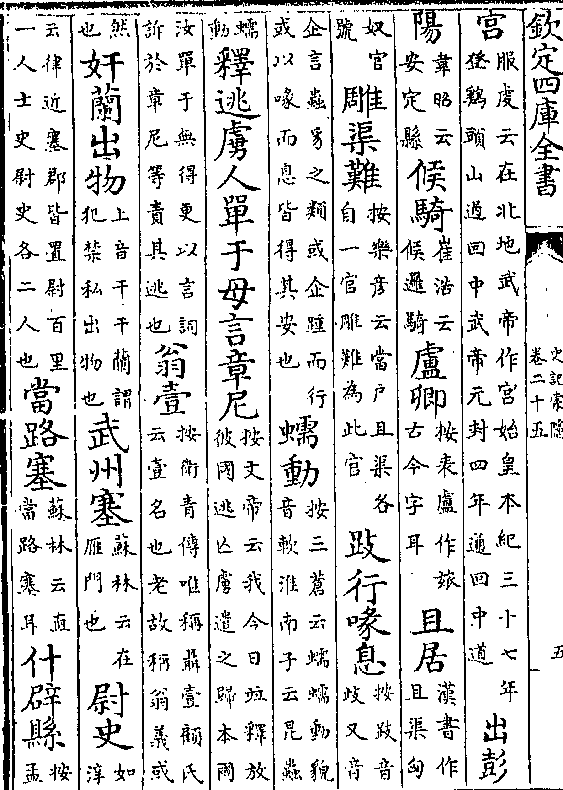 欽定四庫全書 史記索隱卷二十五 五
宮服虔云在北地武帝作宮始皇本紀三十七年登鷄頭山過回中武帝元封四年通回中道出彭
陽韋昭云安定縣候騎崔浩云候邏騎盧卿按表盧作旅古今字耳且居漢書作且渠匈
奴官號雕渠難按樂彦云當戶且渠各自一官雕難為此官跂行喙息按跂音岐又音
企言蟲豸之類或企踵而行或以喙而息皆得其安也蠕動按三蒼云蠕蠕動貌音軟淮南子云昆蟲
蠕動釋逃虜人單于毋言章尼按文帝云我今日竝釋放彼國逃亡虜遣之歸本國
汝單于無得更以言詞訴於章尼等責其逃也翁壹按衛青傳唯稱聶壹顧氏云壹名也老故稱翁義或
然也奸蘭出物上音干干蘭謂犯禁私出物也武州塞蘇林云在雁門也尉史如淳
云律近塞郡皆置尉百里一人士史尉史各二人也當路塞蘇林云直當路塞耳什辟縣按孟